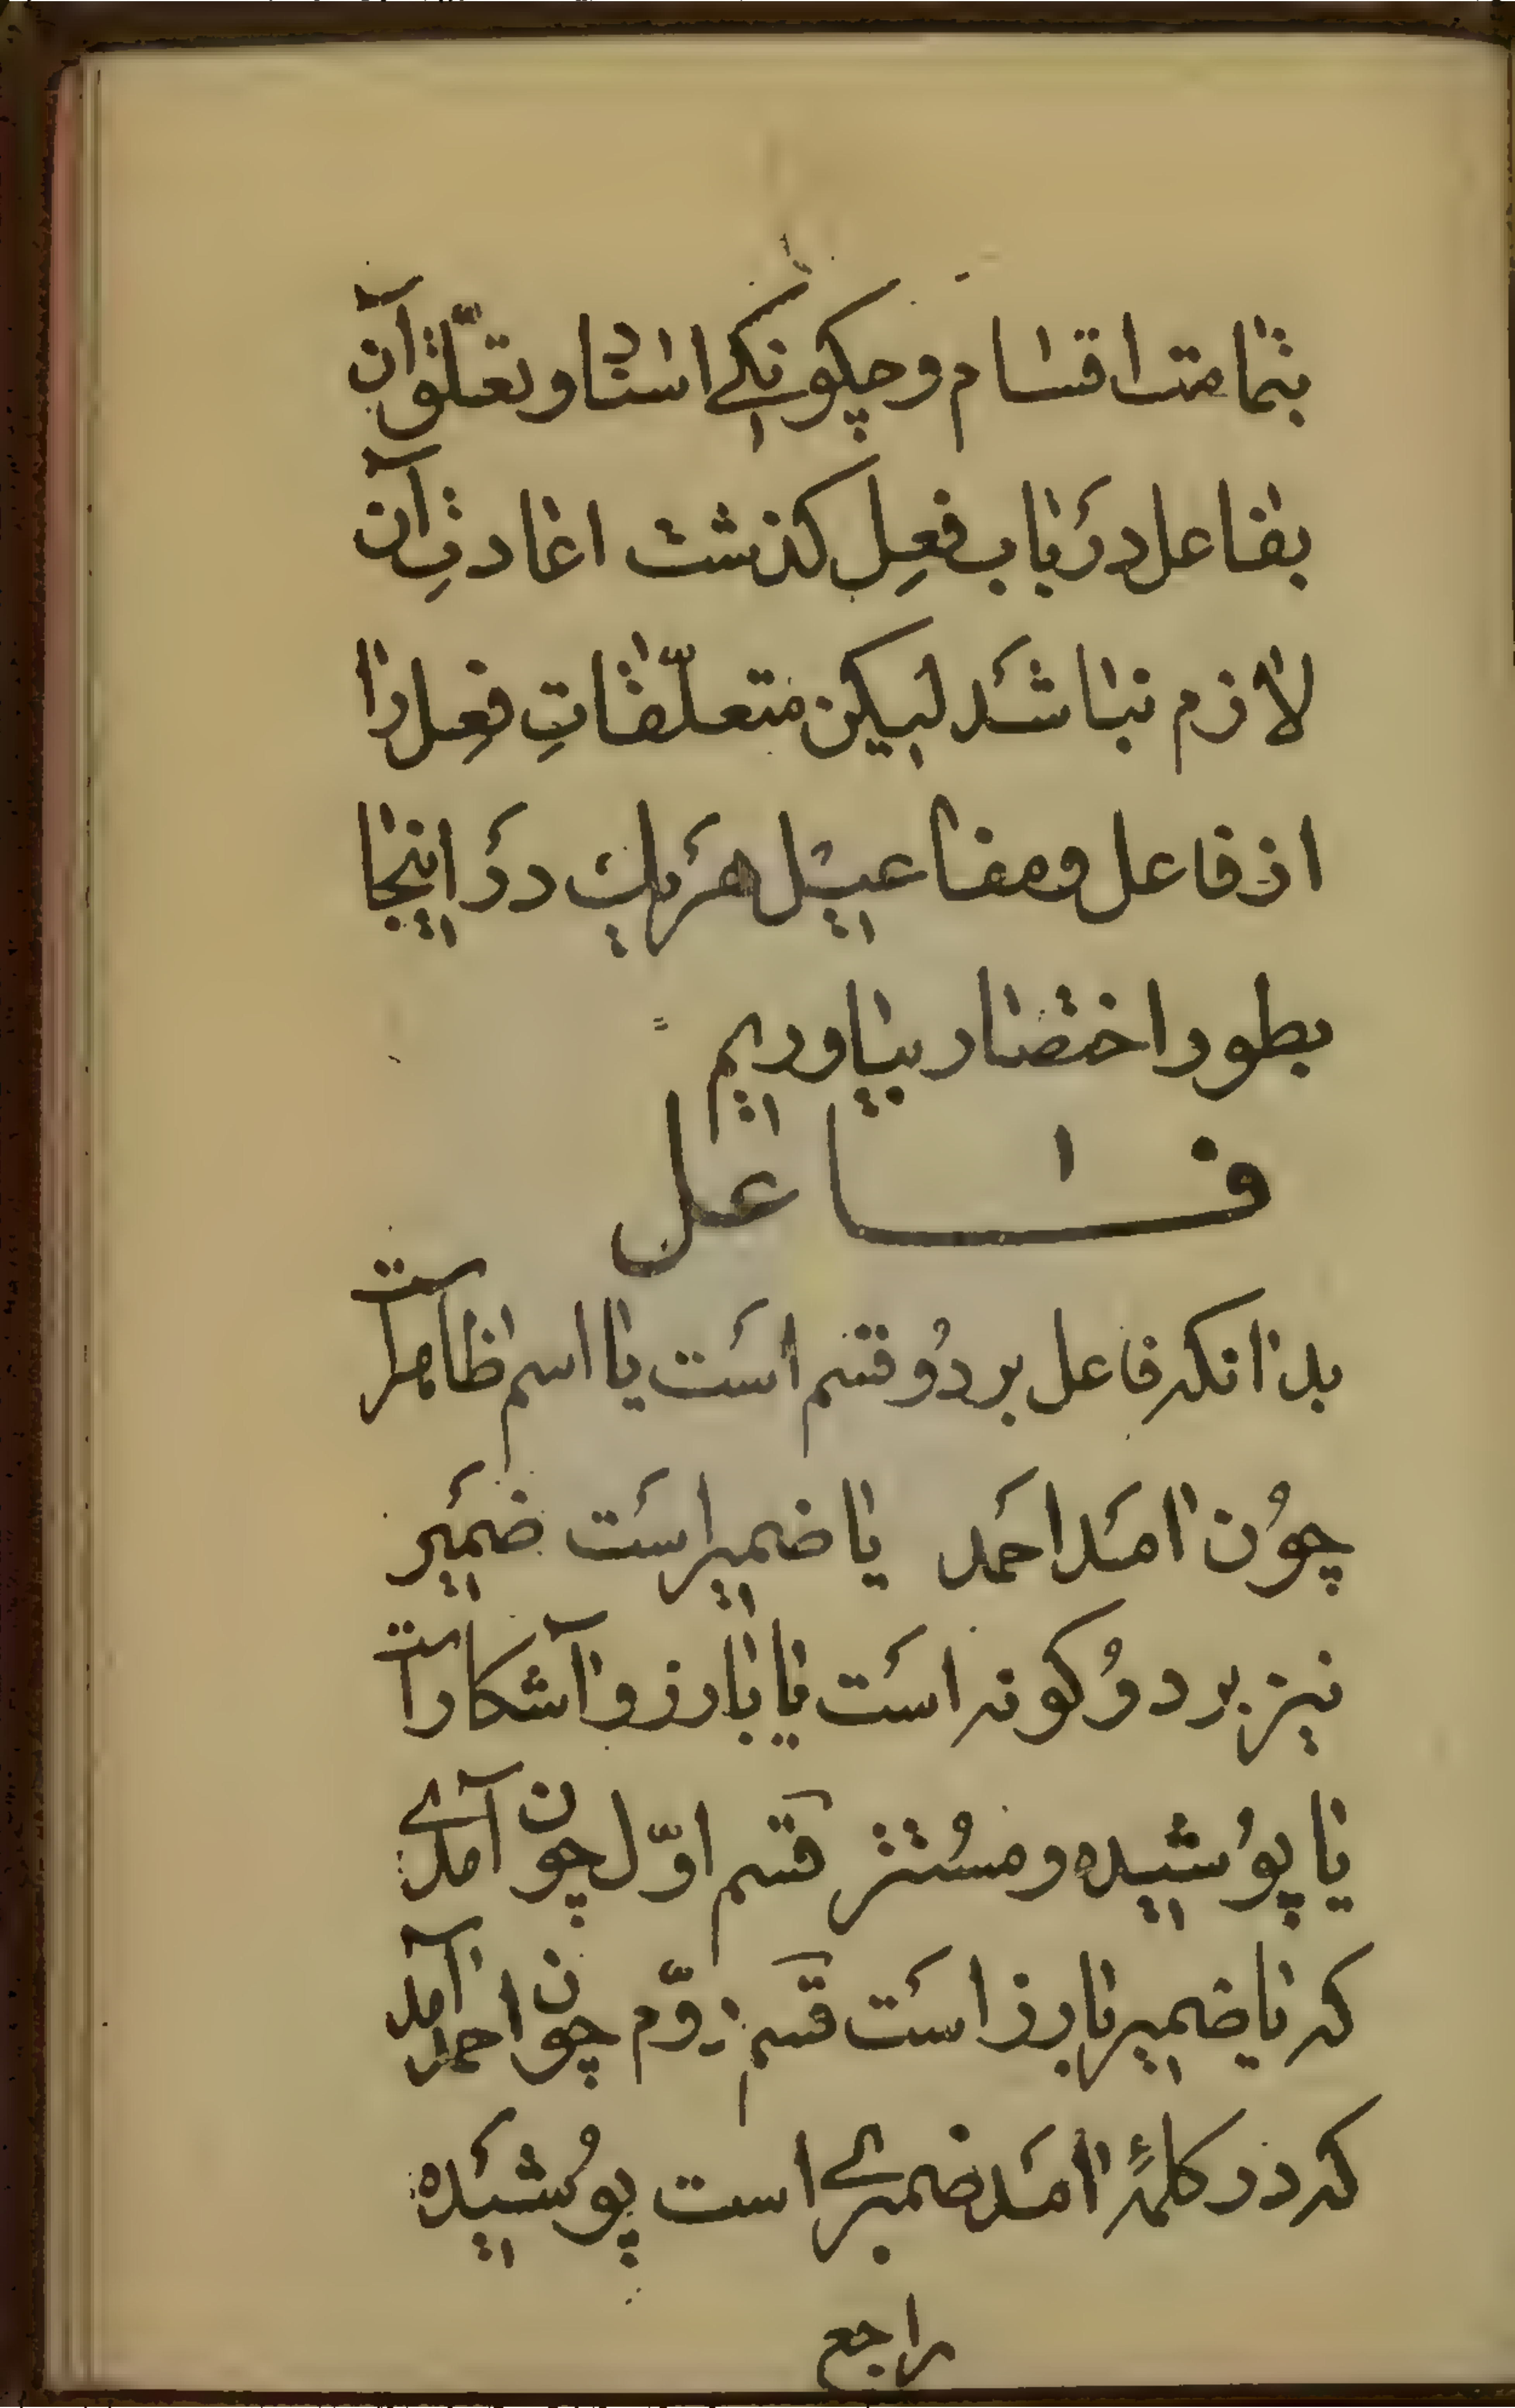 بتمامت اقسام و چکونکی اسناد و تعلّق آن
بفاعل دَر باب فعِل کذشت اعادتِ آن
لازم نباشَد لیکن متعلّقاتِ فعِل را
از فاعل و مفاعیل هَر یک دَر اینجا
بطور اختصار بیاوریم
فاعل
بدانکه فاعل بر دُو قسم اسَت یا اسم ظاهر است
چوُن امَد احَمد یا ضمیر اسَت ضمَیر
نیز بر دوُ کونه اسَت یا بارز و آشکار است
یا پوُشیده و مسُتتر قسَم اوّل چون آمدی
که یا ضمیر بارز اسَت قسَم دوّم چون احمد آمد
که در کلمهٔ امَد ضمیری است پوُشَیده
راجع